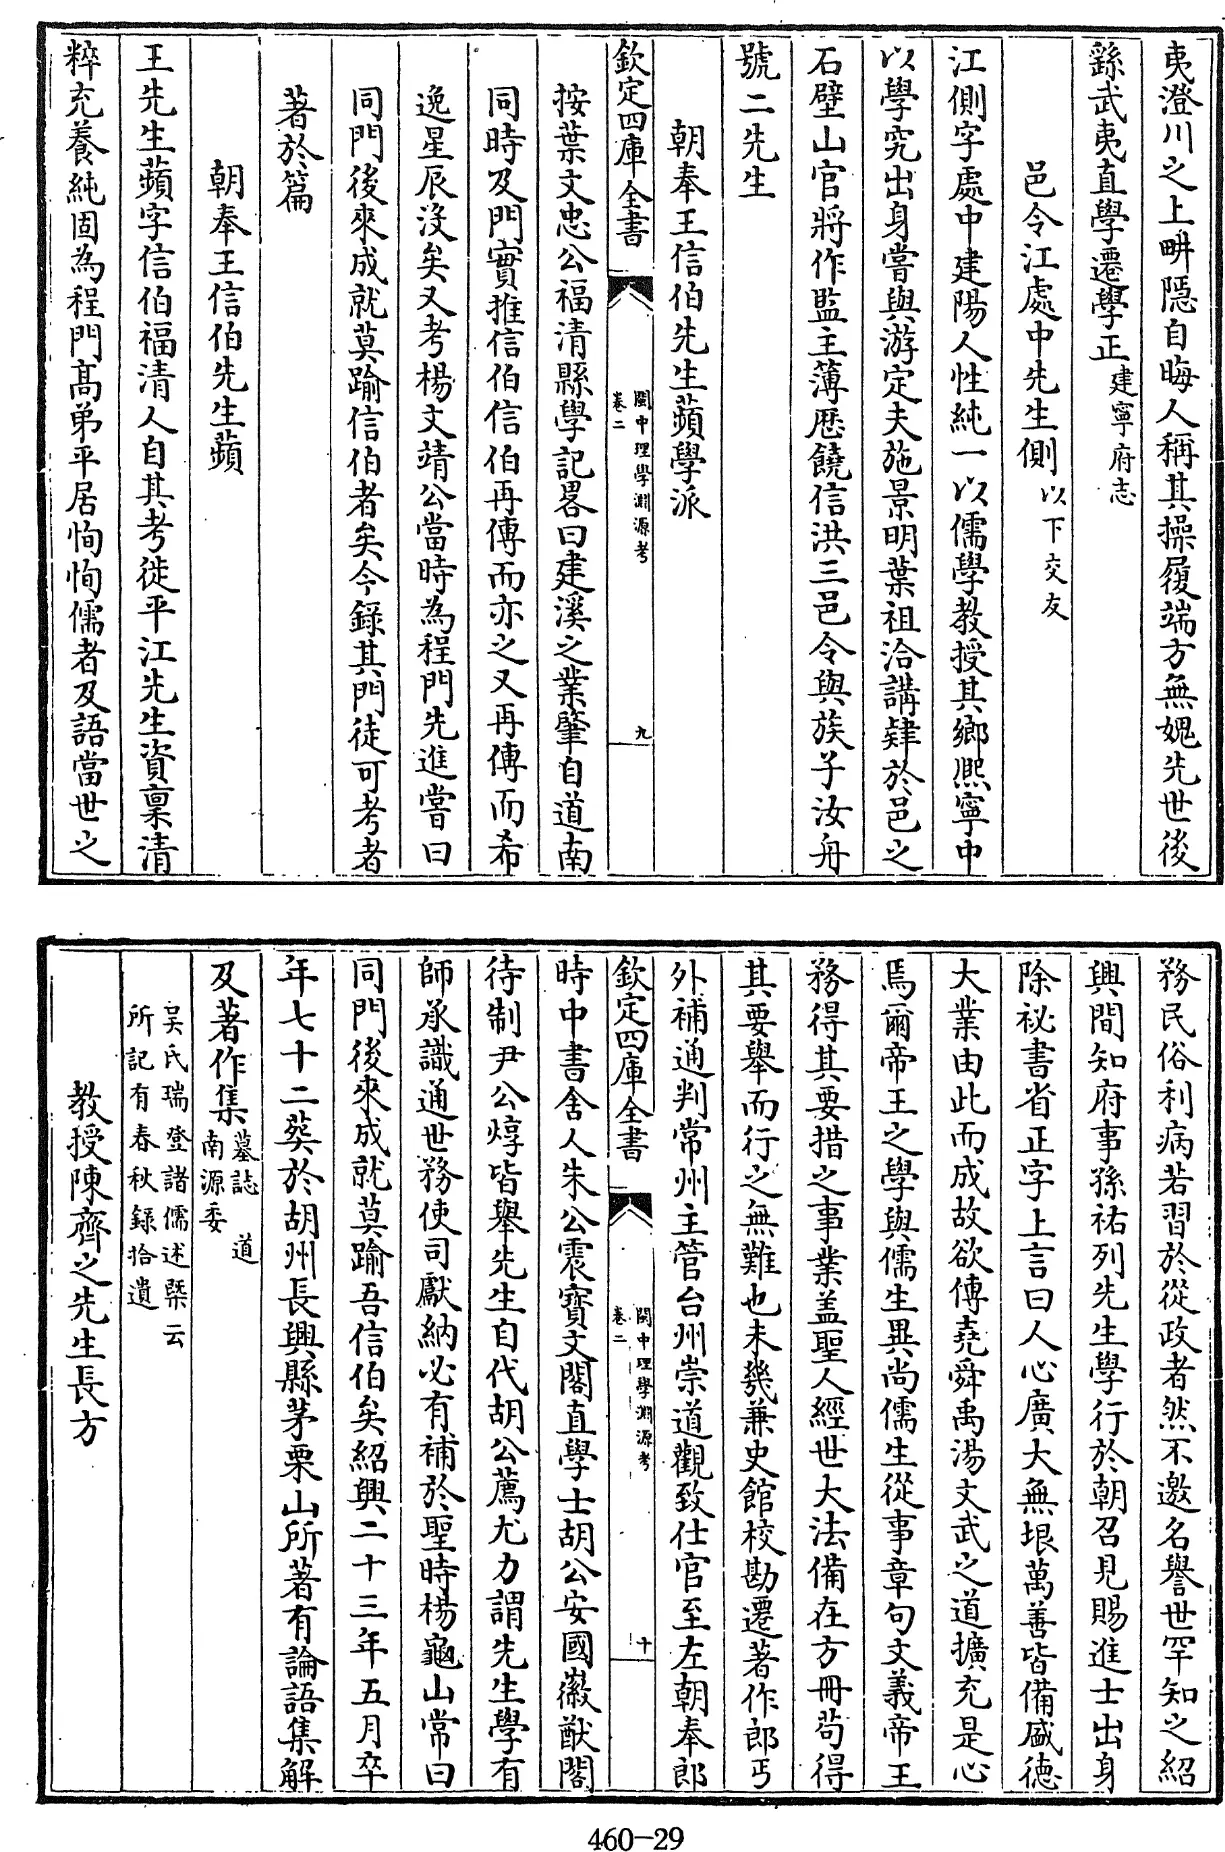 夷澄川之上畊隠自晦人稱其操履端方無媿先世後
繇武夷直學遷學正建寧府志
邑令江處中先生側以下交友
江側字處中建陽人性純一以儒學教授其鄉熈寧中
以學究出身嘗與游定夫施景明葉祖洽講肄於邑之
石壁山官將作監主薄歴饒信洪三邑令與族子汝舟
號二先生
朝奉王信伯先生蘋學派
欽定四庫全書
閩中理學淵源考
卷二
九
按葉文忠公福清縣學記畧曰建溪之業肇自道南
同時及門實推信伯信伯再傳而亦之又再傳而希
逸星辰沒矣又考楊文靖公當時為程門先進嘗曰
同門後來成就莫踰信伯者矣今録其門徒可考者
著於篇
朝奉王信伯先生蘋
王先生蘋字信伯福清人自其考徙平江先生資稟清
粹充養純固為程門髙弟平居恂恂儒者及語當世之
務民俗利病若習於從政者然不邀名譽世罕知之紹
興間知府事孫祐列先生學行於朝召見賜進士出身
除祕書省正字上言曰人心廣大無垠萬善皆備盛徳
大業由此而成故欲傳堯舜禹湯文武之道擴充是心
焉爾帝王之學與儒生異尚儒生從事章句文義帝王
務得其要措之事業盖聖人經世大法備在方冊苟得
其要舉而行之無難也未幾兼史館校勘遷著作郎丐
外補通判常州主管台州崇道觀致仕官至左朝奉郎
欽定四庫全書
閩中理學淵源考
卷二
十
時中書舍人朱公震寳文閣直學士胡公安國徽猷閣
待制尹公焞皆舉先生自代胡公薦尤力謂先生學有
師承識通世務使司獻納必有補於聖時楊龜山常曰
同門後來成就莫踰吾信伯矣紹興二十三年五月卒
年七十二葬於胡州長興縣茅栗山所著有論語集解
及著作集墓誌　道
南源委
吴氏瑞登諸儒述槩云
所記有春秋録拾遺
教授陳齊之先生長方
460-29